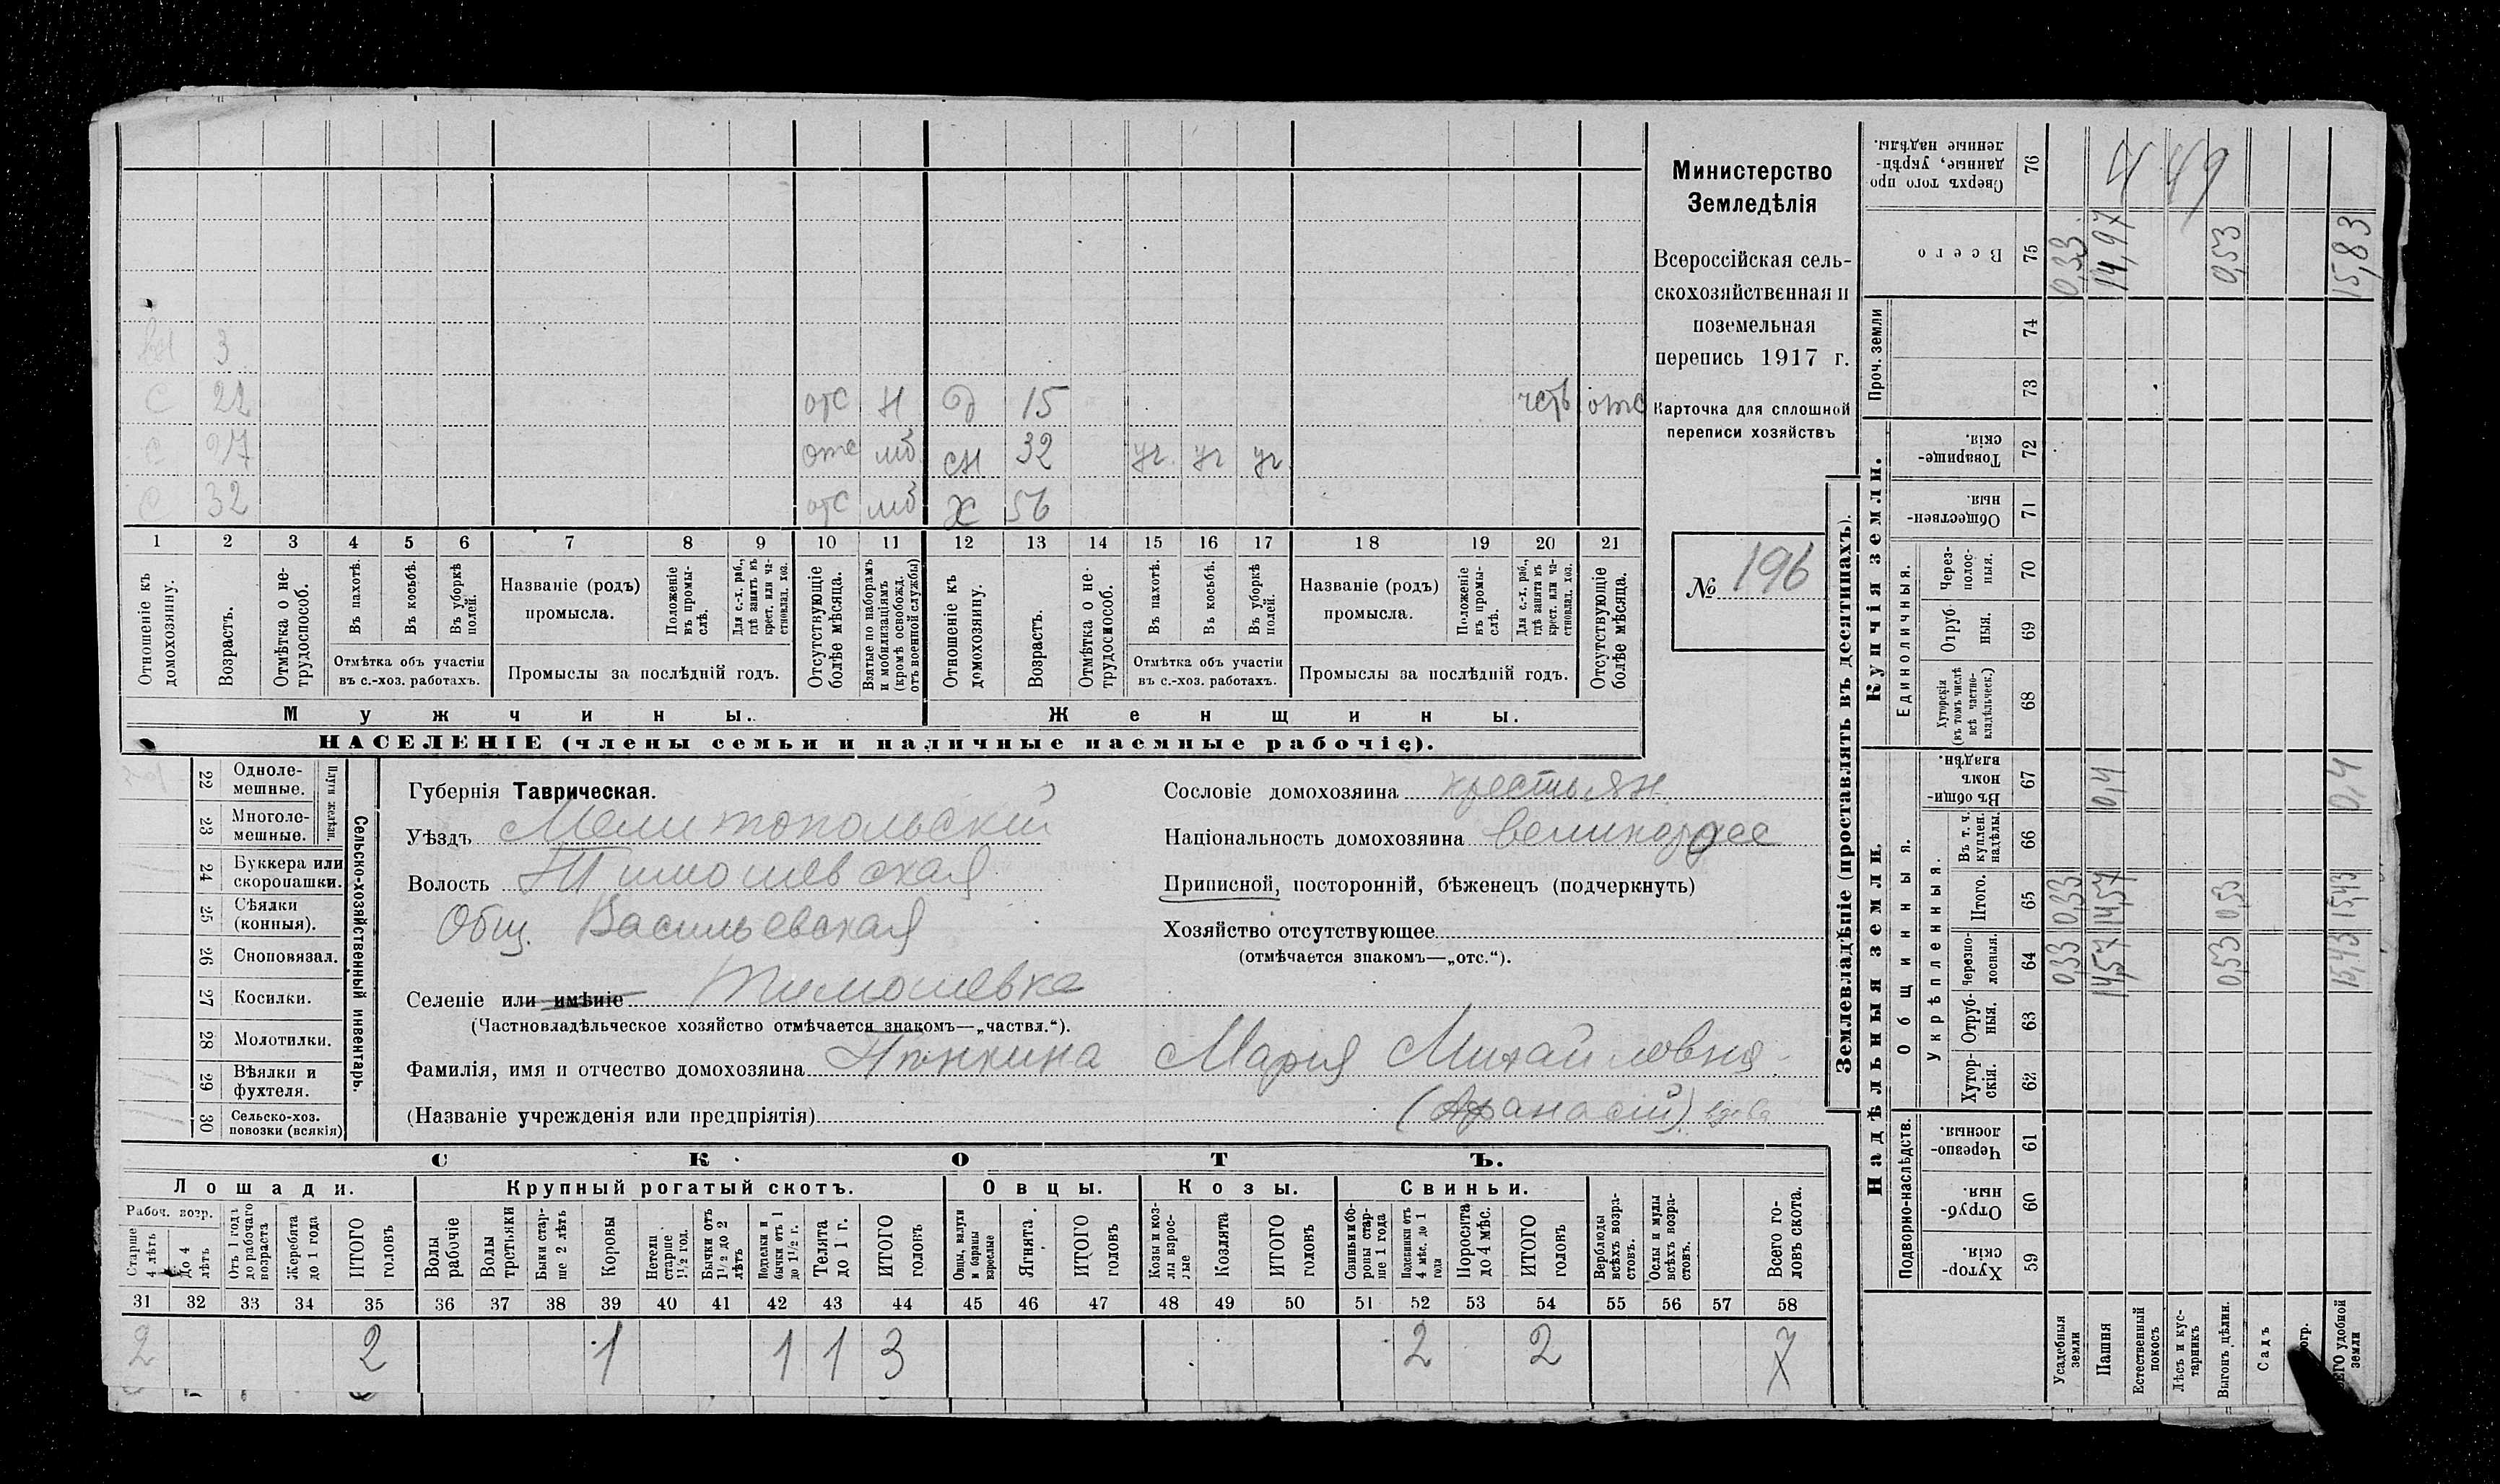 Министерство
Земледѣлія
Всероссійская сель-
скохозяйственная и
поземельная
перепись 1917 г.
Карточка для сплошной
переписи хозяйствъ
№ 196
3
С 22 отс Н Д 15 отс
С 27 отс мб сн 32 уч уч уч
С 32 отс мб Х 56
1 2 3 4 5 6 7 8 9 10 11 12 13 14 15 16 17 18 19 20 21
Отношеніе къ домохозяину.
Возрастъ.
Отмѣтка о не-трудоспособ.
Въ пахотѣ.
Въ косьбѣ.
Въ уборкѣ полей.
Отмѣтка объ участіи въ с.-хоз. работахъ.
Названіе (родъ) промысла.
Положеніе въ промы-слѣ.
Для с.-х. раб., гдѣ занятъ въ крест. или ча-стновлад. хоз.
Промыслы за послѣдній годъ.
Отсутствующіе болѣе мѣсяца.
Взятые по наборамъ и мобилизаціямъ (кромѣ освобожд. отъ военной службы)
Отношеніе къ домохозяину.
Возрастъ.
Отмѣтка о не-трудоспособ.
Въ пахотѣ.
Въ косьбѣ.
Въ уборкѣ полей.
Отмѣтка объ участіи въ с.-хоз. работахъ.
Названіе (родъ) промысла.
Положеніе въ промы-слѣ.
Для с.-х. раб., гдѣ занята въ крест. или ча-стновлад. хоз.
Промыслы за послѣдній годъ.
Отсутствующіе болѣе мѣсяца.
Мужчины. Женщины.
НАСЕЛЕНІЕ (члены семьи и наличные наемные рабочіе).
Сельско-хозяйственный инвентарь.
Плуги желѣзн.
22 Одноле-мешные.
23 Многоле-мешные.
24 Буккера или скоропашки.
25 Сѣялки (конныя).
26 Сноповязал.
27 Косилки.
28 Молотилки.
29 Вѣялки и фухтеля.
30 Сельско-хоз. повозки (всякія)
Губернія Таврическая.
Уѣздъ Мелитопольскій
Волость Тимошевская
Общ. Васильевская
Селеніе или имѣніе Тимошевка
(Частновладѣльческое хозяйство отмѣчается знакомъ—„частвл.“).
Фамилія, имя и отчество домохозяина Пѣнкина Мария Михайловна.
(Названіе учрежденія или предпріятія) (Афанасій) вдова
Сословіе домохозяина крестьян.
Національность домохозяина великоросс
Приписной, посторонній, бѣженецъ (подчеркнуть)
Хозяйство отсутствующее
(отмѣчается знакомъ—„отс.“).
СКОТЪ.
Лошади. Крупный рогатый скотъ. Овцы. Козы. Свиньи.
Рабоч. возр.
Старше 4 лѣтъ
До 4 лѣтъ
Отъ 1 года до рабочаго возраста
Жеребята до 1 года
ИТОГО головъ
Волы рабочіе
Волы третьяки
Быки стар-ше 2 лѣтъ
Коровы
Нетели старше 1½ год.
Бычки отъ 1½ до 2 лѣтъ
Подтелки и бычки отъ 1 до 1½ г.
Телята до 1 г.
ИТОГО головъ
Овцы, валухи и бараны взрослые
Ягнята.
ИТОГО головъ
Козы и коз-лы взрос-лые
Козлята
ИТОГО головъ
Свиньи и бо-ровы стар-ше 1 года
Подсвинки отъ 4 мѣс. до 1 года
Поросята до 4 мѣс.
ИТОГО головъ
Верблюды всѣхъ возра-стовъ.
Ослы и мулы всѣхъ возра-стовъ.
Всего го-ловъ скота.
31 32 33 34 35 36 37 38 39 40 41 42 43 44 45 46 47 48 49 50 51 52 53 54 55 56 57 58
2 2 1 1 1 3 2 2 7
Землевладѣніе (проставлять въ десятинахъ).
Надѣльныя земли. Купчія земли. Проч. земли
Подворно-наслѣдств. Общинныя. Единоличныя.
Укрѣпленныя.
Сверхъ того про данные, укрѣп-ленные надѣлы. 76 4 49
Всего 75 0,33 14,97 0,53 15,83
74
73
Товарище-скія. 72
Обществен-ныя. 71
Через-полос-ныя. 70
Отруб-ныя. 69
Хуторскія (въ томъ числѣ всѣ частно-владѣльческ.) 68
Въ общи-номъ владѣн. 67 0,4 0,4
Въ т. ч. куплен. надѣлы. 66
Итого. 65 0,33 14,57 0,53 15,43
Черезпо-лосныя. 64 0,33 14,57 0,53 15,43
Отруб-ныя. 63
Хутор-скія. 62
Черезпо-лосныя. 61
Отруб-ныя. 60
Хутор-скія. 59
Усадебныя земли
Пашня
Естественный покосъ
Лѣсъ и кус-тарникъ
Выгонъ, цѣлин.
Садъ
огр.
ЕГО удобной земли